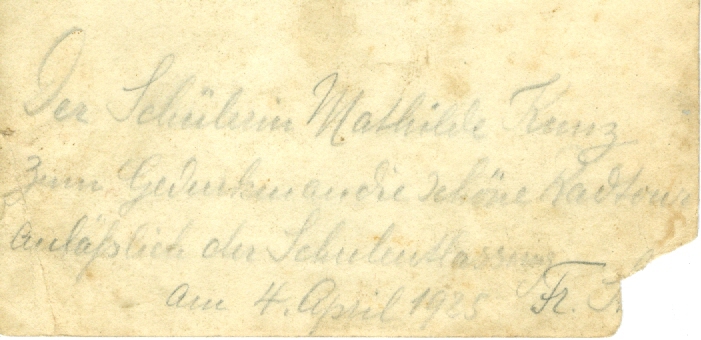 Der Schülerin Mathilde Kunz
zum Gedenken an die schöne Radtour
anläßlich der Schulentlassung
am 4. April 1925 Fr.